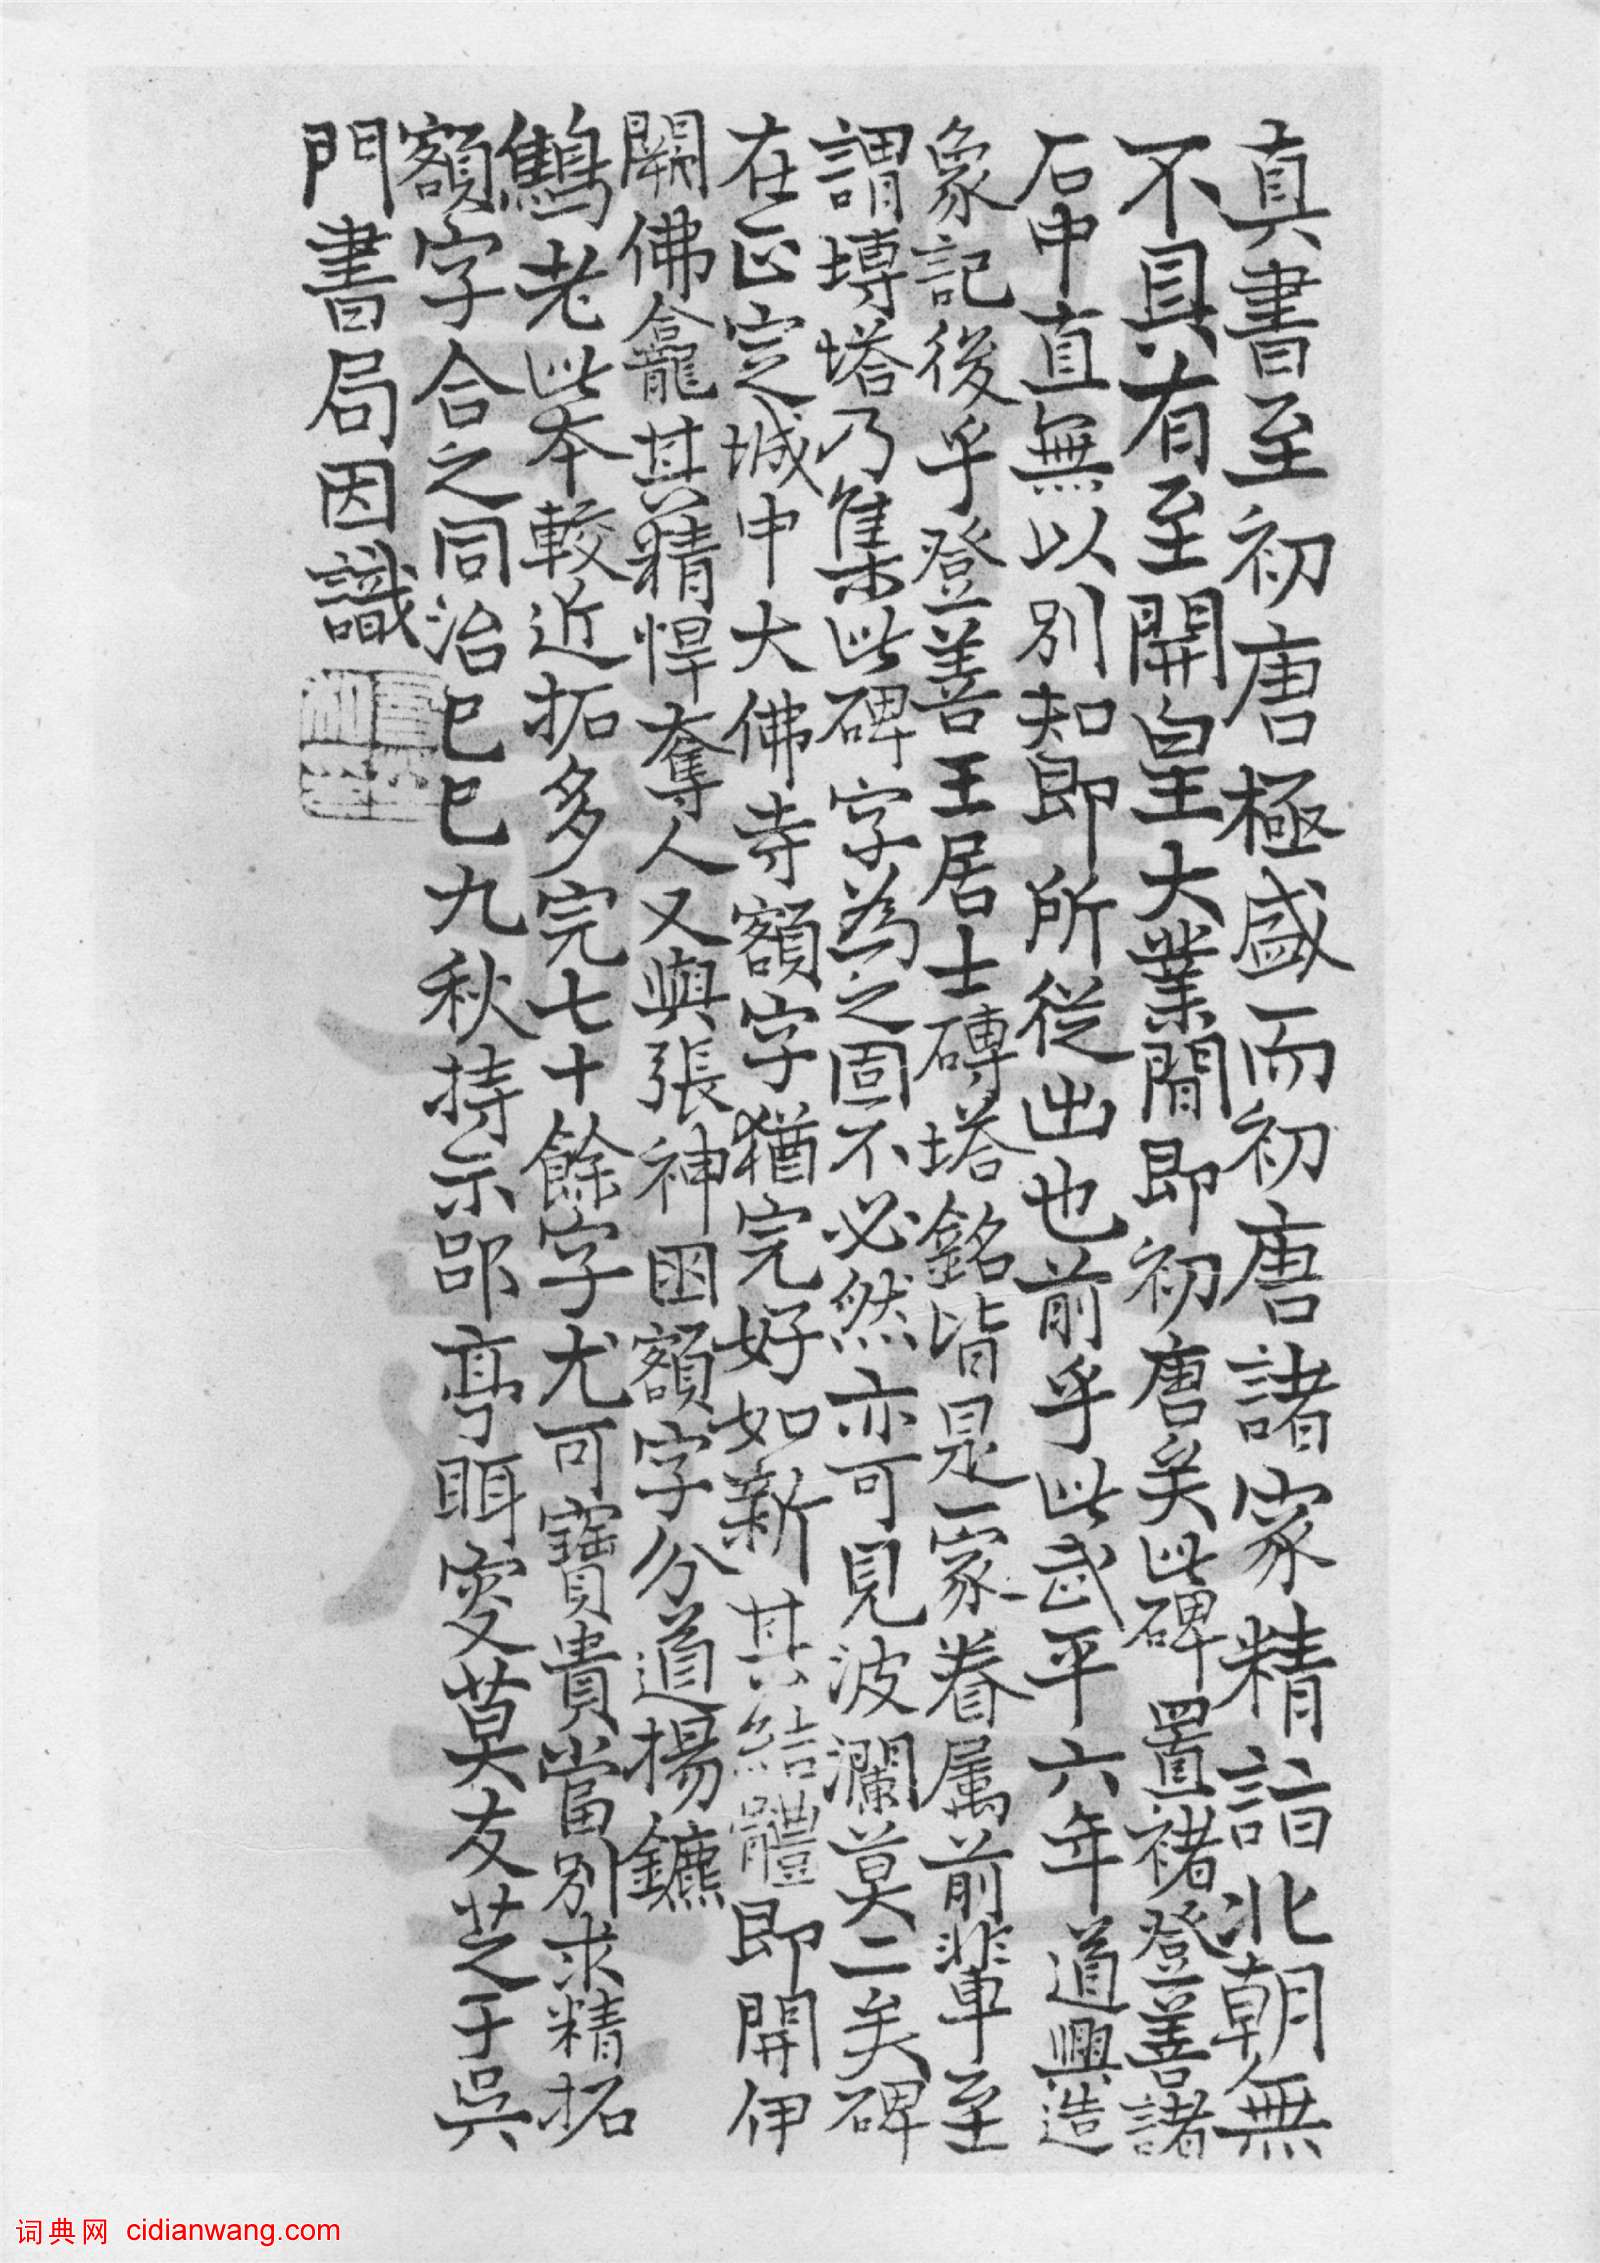 真書至初唐極盛而初唐諸家精詣北朝無
不具有至開皇大業間即初唐矣此碑置褚登善諸
石中直無以別知即所從出也前乎此武平六年道興造
象記後乎登善王居士磚塔銘皆是一家眷属前輩至
謂塼塔乃集此碑字為之固不必然亦可見波瀾莫二矣碑
在正定城中大佛寺額字猶完好如新其結體即開伊
闕佛龕其精悍奪人又與張神囧額字分道揚鑣
鷦老此本較近拓多完七十餘字尤可寶貴當別求精拓
額字合之同治己巳九秋持示郘亭眲叟莫友芝于吳
門書局因識
词典网 cidianwang.com